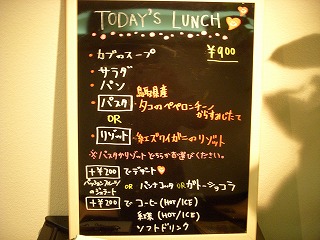 TODAY'S LUNCH
・カブのスープ ¥900
・サラダ
・パン
・パスタ 鳥取県産
タコのペペロンチーノ
からすみじたて
OR
・リゾット 紅ズワイガニのリゾット
※パスタかリゾットどちらか選びください。
+¥200 でデザート
パッションフルーツのジェラート OR パンナコッタ OR ガトーショコラ
+¥200 で コーヒー (HOT/ICE)
紅茶 (HOT/ICE)
ソフトドリンク